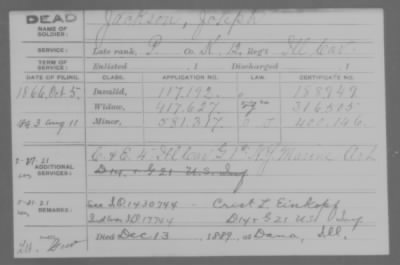 DEAD
NAME OF SOLDIER: Jackson, Joseph
SERVICE: Late rank, P. Co. K, 12, Reg't Ill Cav.
TERM OF SERVICE: Enlisted , 1 Discharged , 1
DATE OF FILING. CLASS. APPLICATION NO. LAW. CERTIFICATE NO.
1866, Oct 5. Invalid, 117.192. 188949
Widow, 417.627. 316,505
Aug 11 Minor, 581.317 400.146.
ADDITIONAL SERVICES: C & E. 4" Ill Cav G 1" N.Y. Marine Art.
D 14 & G 21 U.S. Inf
REMARKS: See SO 1430744 - Crist L. Einkopf
IO 17744 D 14 & G 21 US Inf
Died Dec. 13, 1889, at Dana, Ill.